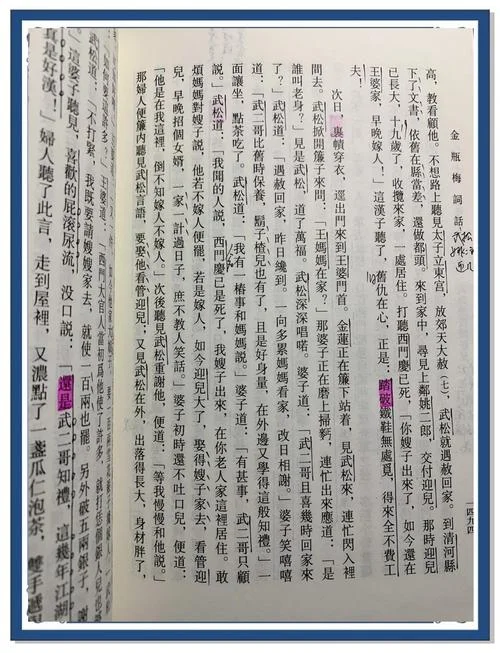 金瓶梅詞話
四九四
高，教看顧他。不想路上聽見太子立東宮，放郊天大赦㈦，武松就遇赦回家。到清河縣
下了文書，依舊在縣當差，還做都頭。來到家中，尋見上鄰姚二郎，交付迎兒。那時迎兒
已長大，十九歲了，收攬來家，一處居住。打聽西門慶已死，「你嫂子出來了，如今還在
王婆家，早晚嫁人！」這漢子聽了，舊仇在心，正是：踏破鐵鞋無處覓，得來全不費工
夫！
次日，裹幘穿衣，逕出門來到王婆門首。金蓮正在簾下站着，見武松來，連忙閃入裡
間去。武松掀開簾子來問，「王媽媽在家？」那婆子正在磨上掃麪，連忙出來應道：「是
誰叫老身？」見是武松，道了萬福。武松深深唱喏。婆子道：「武二哥且喜幾時回家來
了？」武松道：「遇赦回家，昨日纔到。一向多累媽媽看家，改日相謝。」婆子笑嘻嘻
道：「武二哥比舊時保養，鬍子楂兒也有了，且是好身量，在外邊又學得這般知禮。」一
面讓坐，點茶吃了。武松道：「我有一樁事和媽媽說。」婆子道：「有甚事，武二哥只顧
說。」武松道：「我聞的人說，西門慶已是死了，我嫂子出來，在你老人家這裡居住。敢
煩媽媽對嫂子說，他若不嫁人便罷，若是嫁人，如今迎兒大了，娶得嫂子家去，看管迎
兒，早晚招個女婿，一家一計過日子，庶不教人笑話。」婆子初時還不吐口兒，便道：
「他是在我這裡，倒不知嫁人不嫁人。」次後聽見武松重謝他，便道：「等我慢慢和他說。」
那婦人便簾內聽見武松言語，要娶他看管迎兒；又見武松在外，出落得長大，身材胖了，
武松道：「不打緊，我既要請嫂嫂家去，就使一百兩也罷。另外破五兩銀子，
這婆子聽見，喜歡的屁滾尿流，沒口說，「還是武二哥知禮，這幾年江湖
真是好漢！」婦人聽了此言，走到屋裡，又濃點了一盞瓜仁泡茶，雙手遞